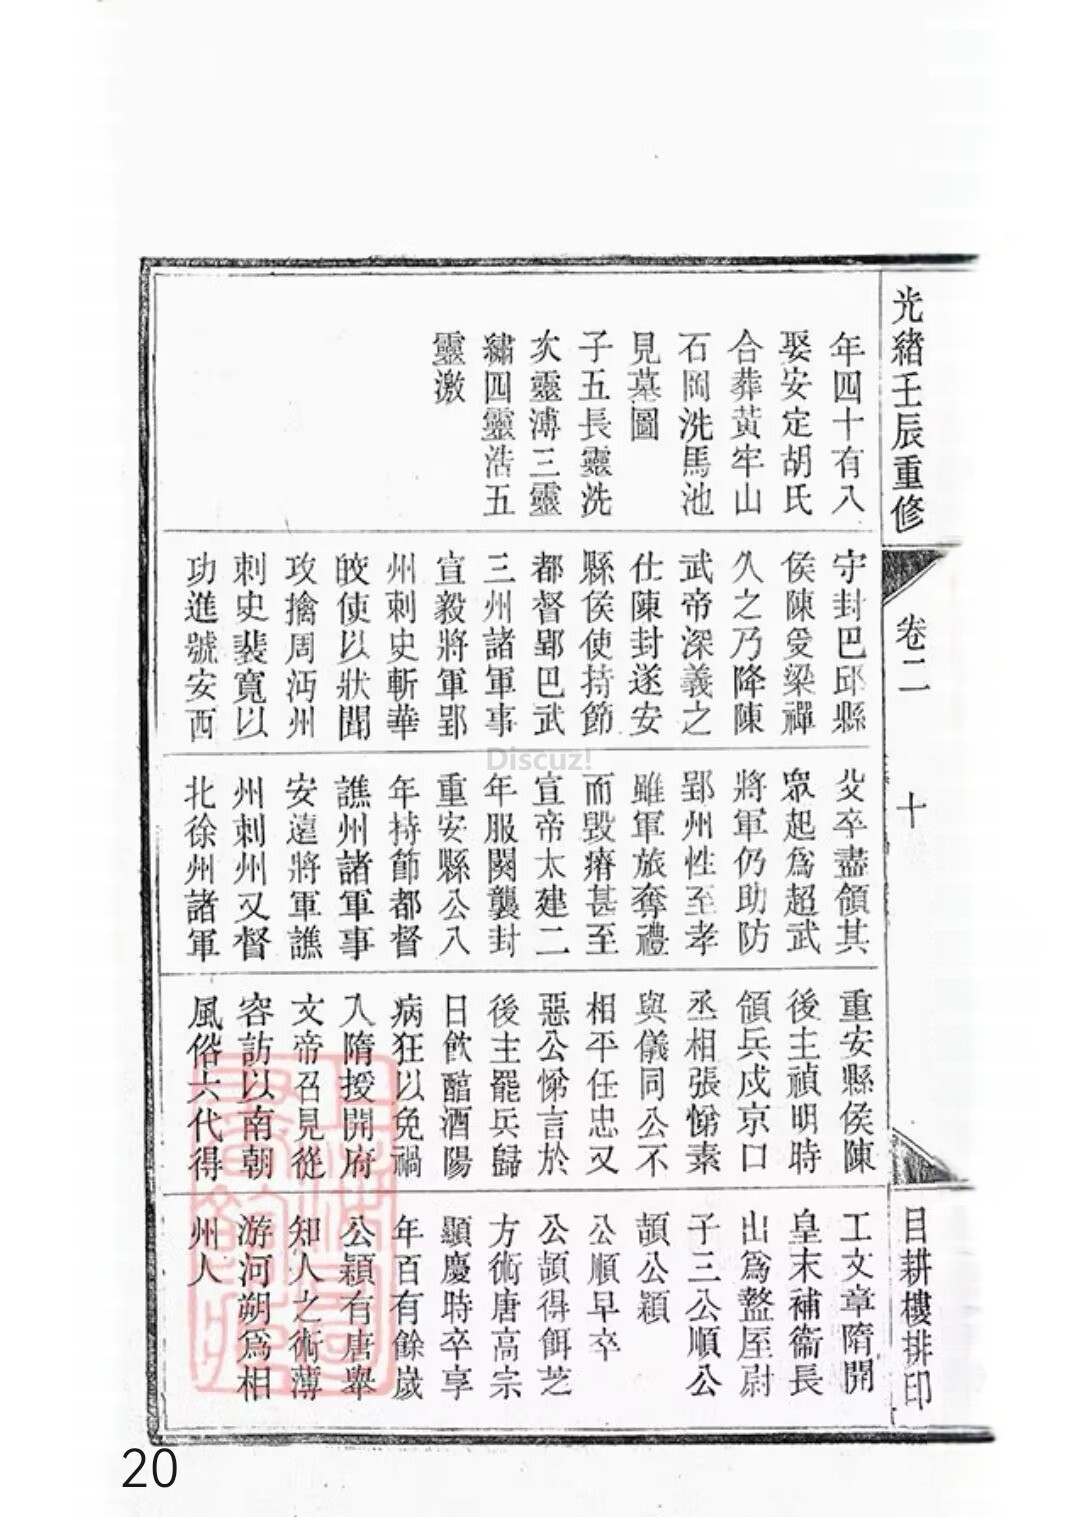 光緒壬辰重修
卷二
十
目耕樓排印
年四十有八
娶安定胡氏
合葬黃牢山
石岡洗馬池
見墓圖
子五長靈洗
次靈溥三靈
繡四靈浩五
靈激
守封巴邱縣
侯陳受梁禪
久之乃降陳
武帝深義之
仕陳封遂安
縣侯使持節
都督郢巴武
三州諸軍事
宣毅將軍郢
州刺史斬華
皎使以狀聞
攻擒周沔州
刺史裴寬以
功進號安西
父卒盡領其
眾起爲超武
將軍仍助防
郢州性至孝
雖軍旅奪禮
而毀瘠甚至
宣帝太建二
年服闋襲封
重安縣公八
年持節都督
譙州諸軍事
安遠將軍譙
州刺州又督
北徐州諸軍
重安縣侯陳
後主禎明時
領兵戍京口
丞相張悌素
與儀同公不
相平任忠又
惡公悌言於
後主罷兵歸
日飲醕酒陽
病狂以免禍
入隋授開府
文帝召見從
容訪以南朝
風俗六代得
工文章隋開
皇末補衞長
出爲盩厔尉
子三公順公
頡公穎
公順早卒
公頡得餌芝
方術唐高宗
顯慶時卒享
年百有餘歲
公穎有唐舉
知人之術薄
游河朔爲相
州人
Discuz!
20